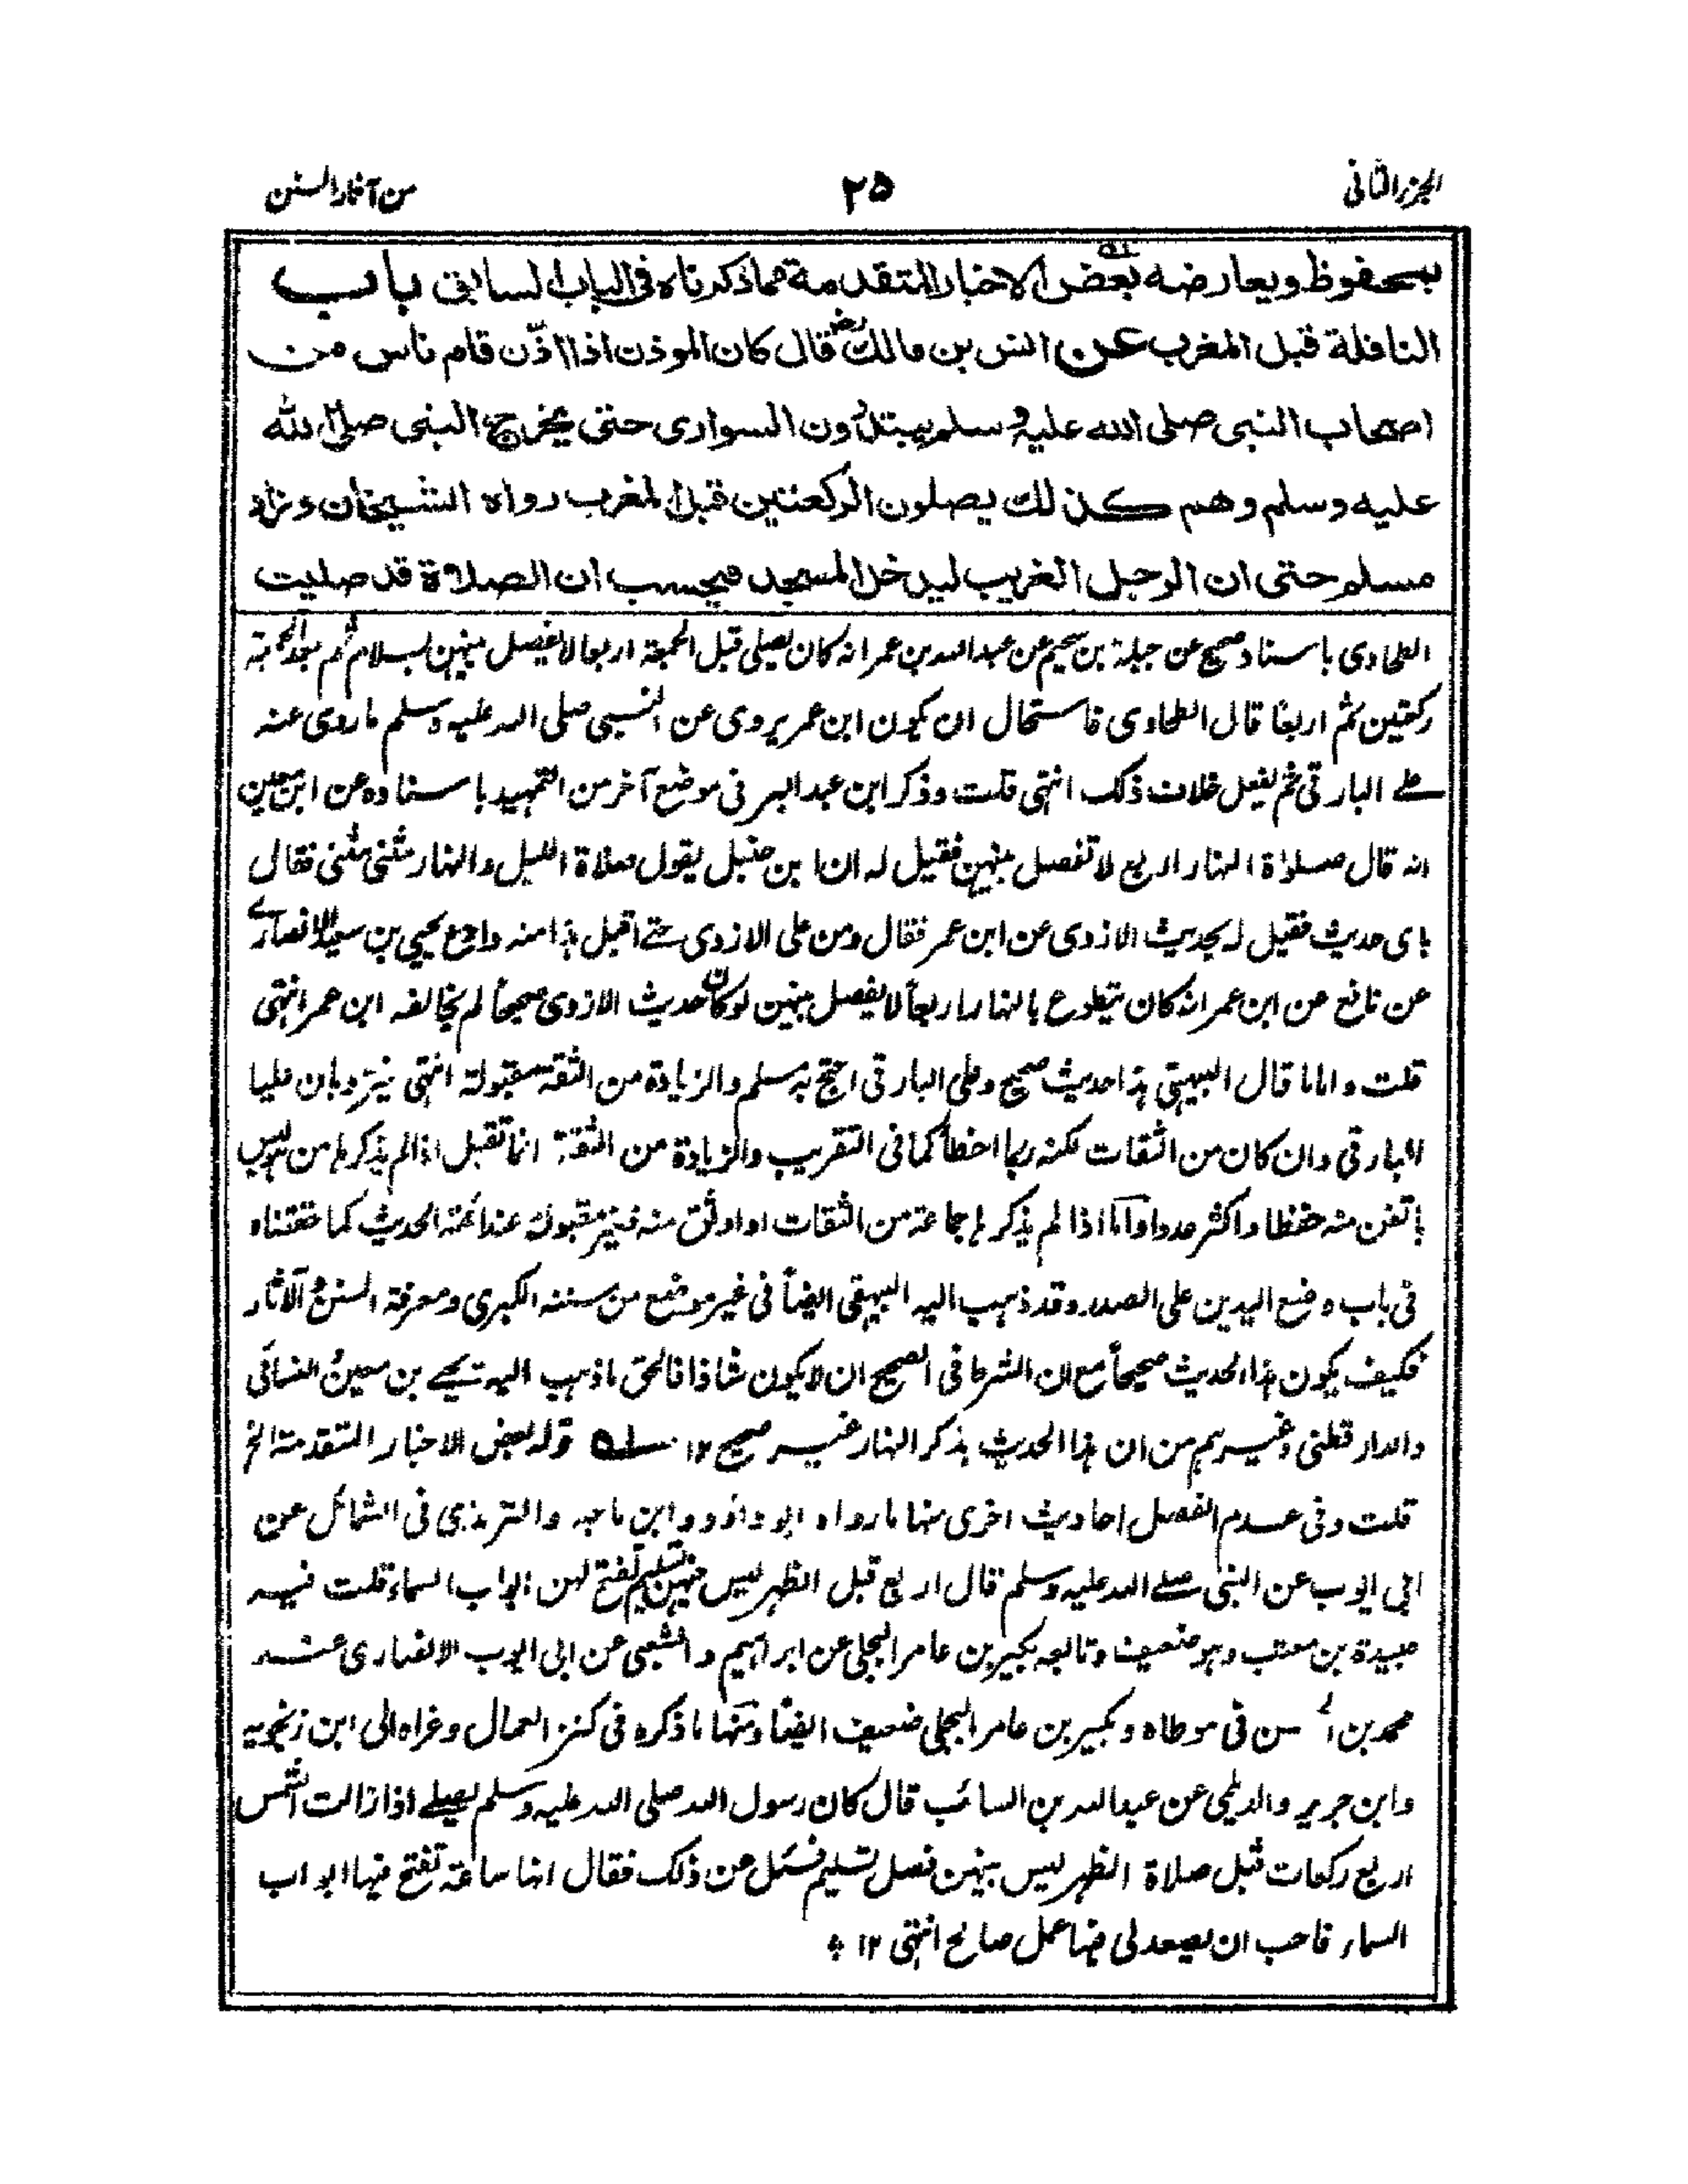 الجزء الثانی ۲۵ من آثار السنن
بمحفوظ ویعارضه بعض الاخبار المتقدمة مما ذکرناه فی الباب السابق باب
النافلة قبل المغرب عن انس بن مالك رض قال کان الموذن اذا اذّن قام ناس من
اصحاب النبی صلی الله علیه وسلم یبتدرون السواری حتی یخرج النبی صلی الله
علیه وسلم وهم کذلك یصلون الرکعتین قبل المغرب رواه الشیخان وزاد
مسلم حتی ان الرجل الغریب لیدخل المسجد فیحسب ان الصلاة قد صلیت
الطحاوی باسناد صحیح عن جبلة بن سحیم عن عبدالله بن عمر انه کان یصلی قبل الجمعة اربعا لا یفصل بینهن بسلام ثم بعد الجمعة
رکعتین ثم اربعا قال الطحاوی فاستحال ان یکون ابن عمر یروی عن النبی صلی الله علیه وسلم ما روی عنه
علی البارقی ثم یفعل خلاف ذلک انتهی قلت وذکر ابن عبدالبر فی موضع آخر من التمهید باسناده عن ابن معین
انه قال صلوٰة النهار اربع لا تفصل بینهن فقیل له ان ابن حنبل یقول صلاة اللیل والنهار مثنی مثنی فقال
بای حدیث فقیل له بحدیث الازدی عن ابن عمر فقال ومن علی الازدی حتے اقبل هذا منه وادع یحیی بن سعید الانصارے
عن نافع عن ابن عمر انه کان یتطوع بالنهار اربعاً لا یفصل بینهن لو کان حدیث الازدی صحیحاً لم یخالفه ابن عمر انتهی
قلت واما ما قال البیهقی هذا حدیث صحیح وعلی البارقی احتج به مسلم والزیادة من الثقة مقبولة انتهی فیرد بان علیا
البارقی وان کان من الثقات لکنه ربما اخطأ کما فی التقریب والزیادة من الثقة انما تقبل اذا لم یذکرها من لیس
باتقن منه حفظا واکثر عددا واما اذا لم یذکرها جماعة من الثقات او اوثق منه فغیر مقبولة عند ائمة الحدیث کما حققناه
فی باب وضع الیدین علی الصدر وقد ذهب الیه البیهقی ایضاً فی غیر موضع من سننه الکبری ومعرفة السنن والآثار
فکیف یکون هذا الحدیث صحیحاً مع ان الشرط فی الصحیح ان لا یکون شاذا فالحق ما ذهب الیه یحیے بن معین والنسائی
والدارقطنی وغیرهم من ان هذا الحدیث بذکر النهار غیر صحیح ۱۲ ۵۱ قوله بعض الاخبار المتقدمة الخ
قلت وفی عدم الفصل احادیث اخری منها ما رواه ابو داؤد وابن ماجه والترمذی فی الشمائل عن
ابی ایوب عن النبی صلے الله علیه وسلم قال اربع قبل الظهر لیس فیهن تسلیم تفتح لهن ابواب السماء قلت فیه
عبیدة بن معتب وهو ضعیف وتابعه بکیر بن عامر البجلی عن ابراهیم والشعبی عن ابی ایوب الانصاری عند
محمد بن الحسن فی موطاه وبکیر بن عامر البجلی ضعیف ایضاً ومنها ما ذکره فی کنز العمال وعزاه الی ابن زنجویه
وابن جریر والدیلمی عن عبدالله بن السائب قال کان رسول الله صلی الله علیه وسلم یصلے اذا زالت الشمس
اربع رکعات قبل صلاة الظهر لیس بینهن فصل تسلیم فسئل عن ذلک فقال انها ساعة تفتح فیها ابواب
السماء فاحب ان یصعد لی فیها عمل صالح انتهی ۱۲